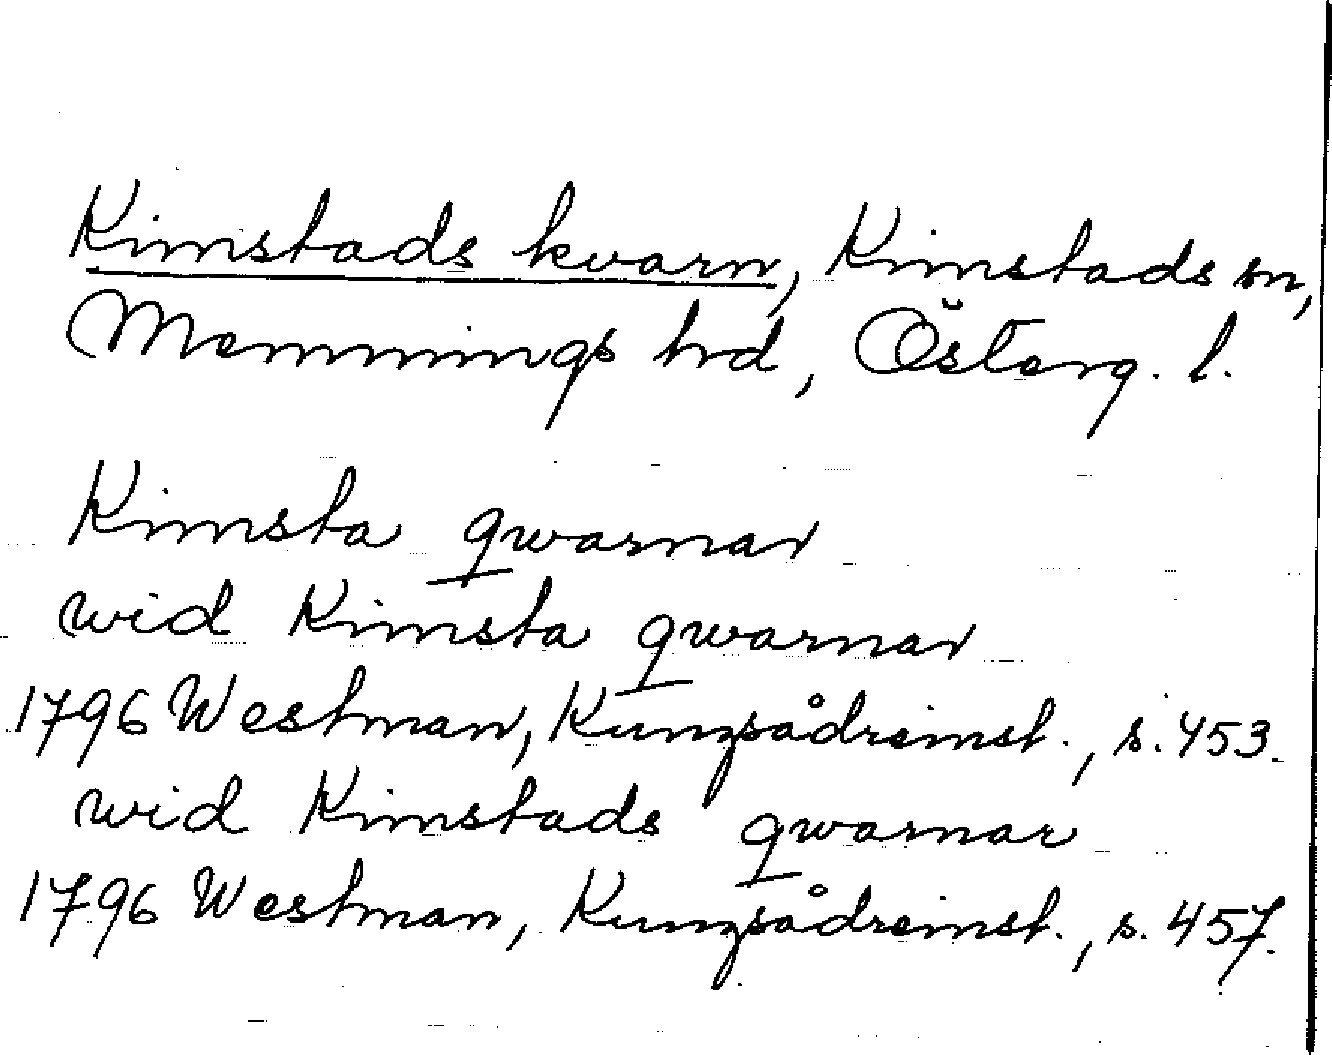 Kimstads kvarn, Kimstads sn,
Memmings hrd, Österg. l.
Kimsta qwarnar
wid Kimsta qwarnar
1796 Westman, Kungsådreinst., s. 453.
wid Kimstads qwarnar
1796 Westman, Kungsådreinst., s. 457.